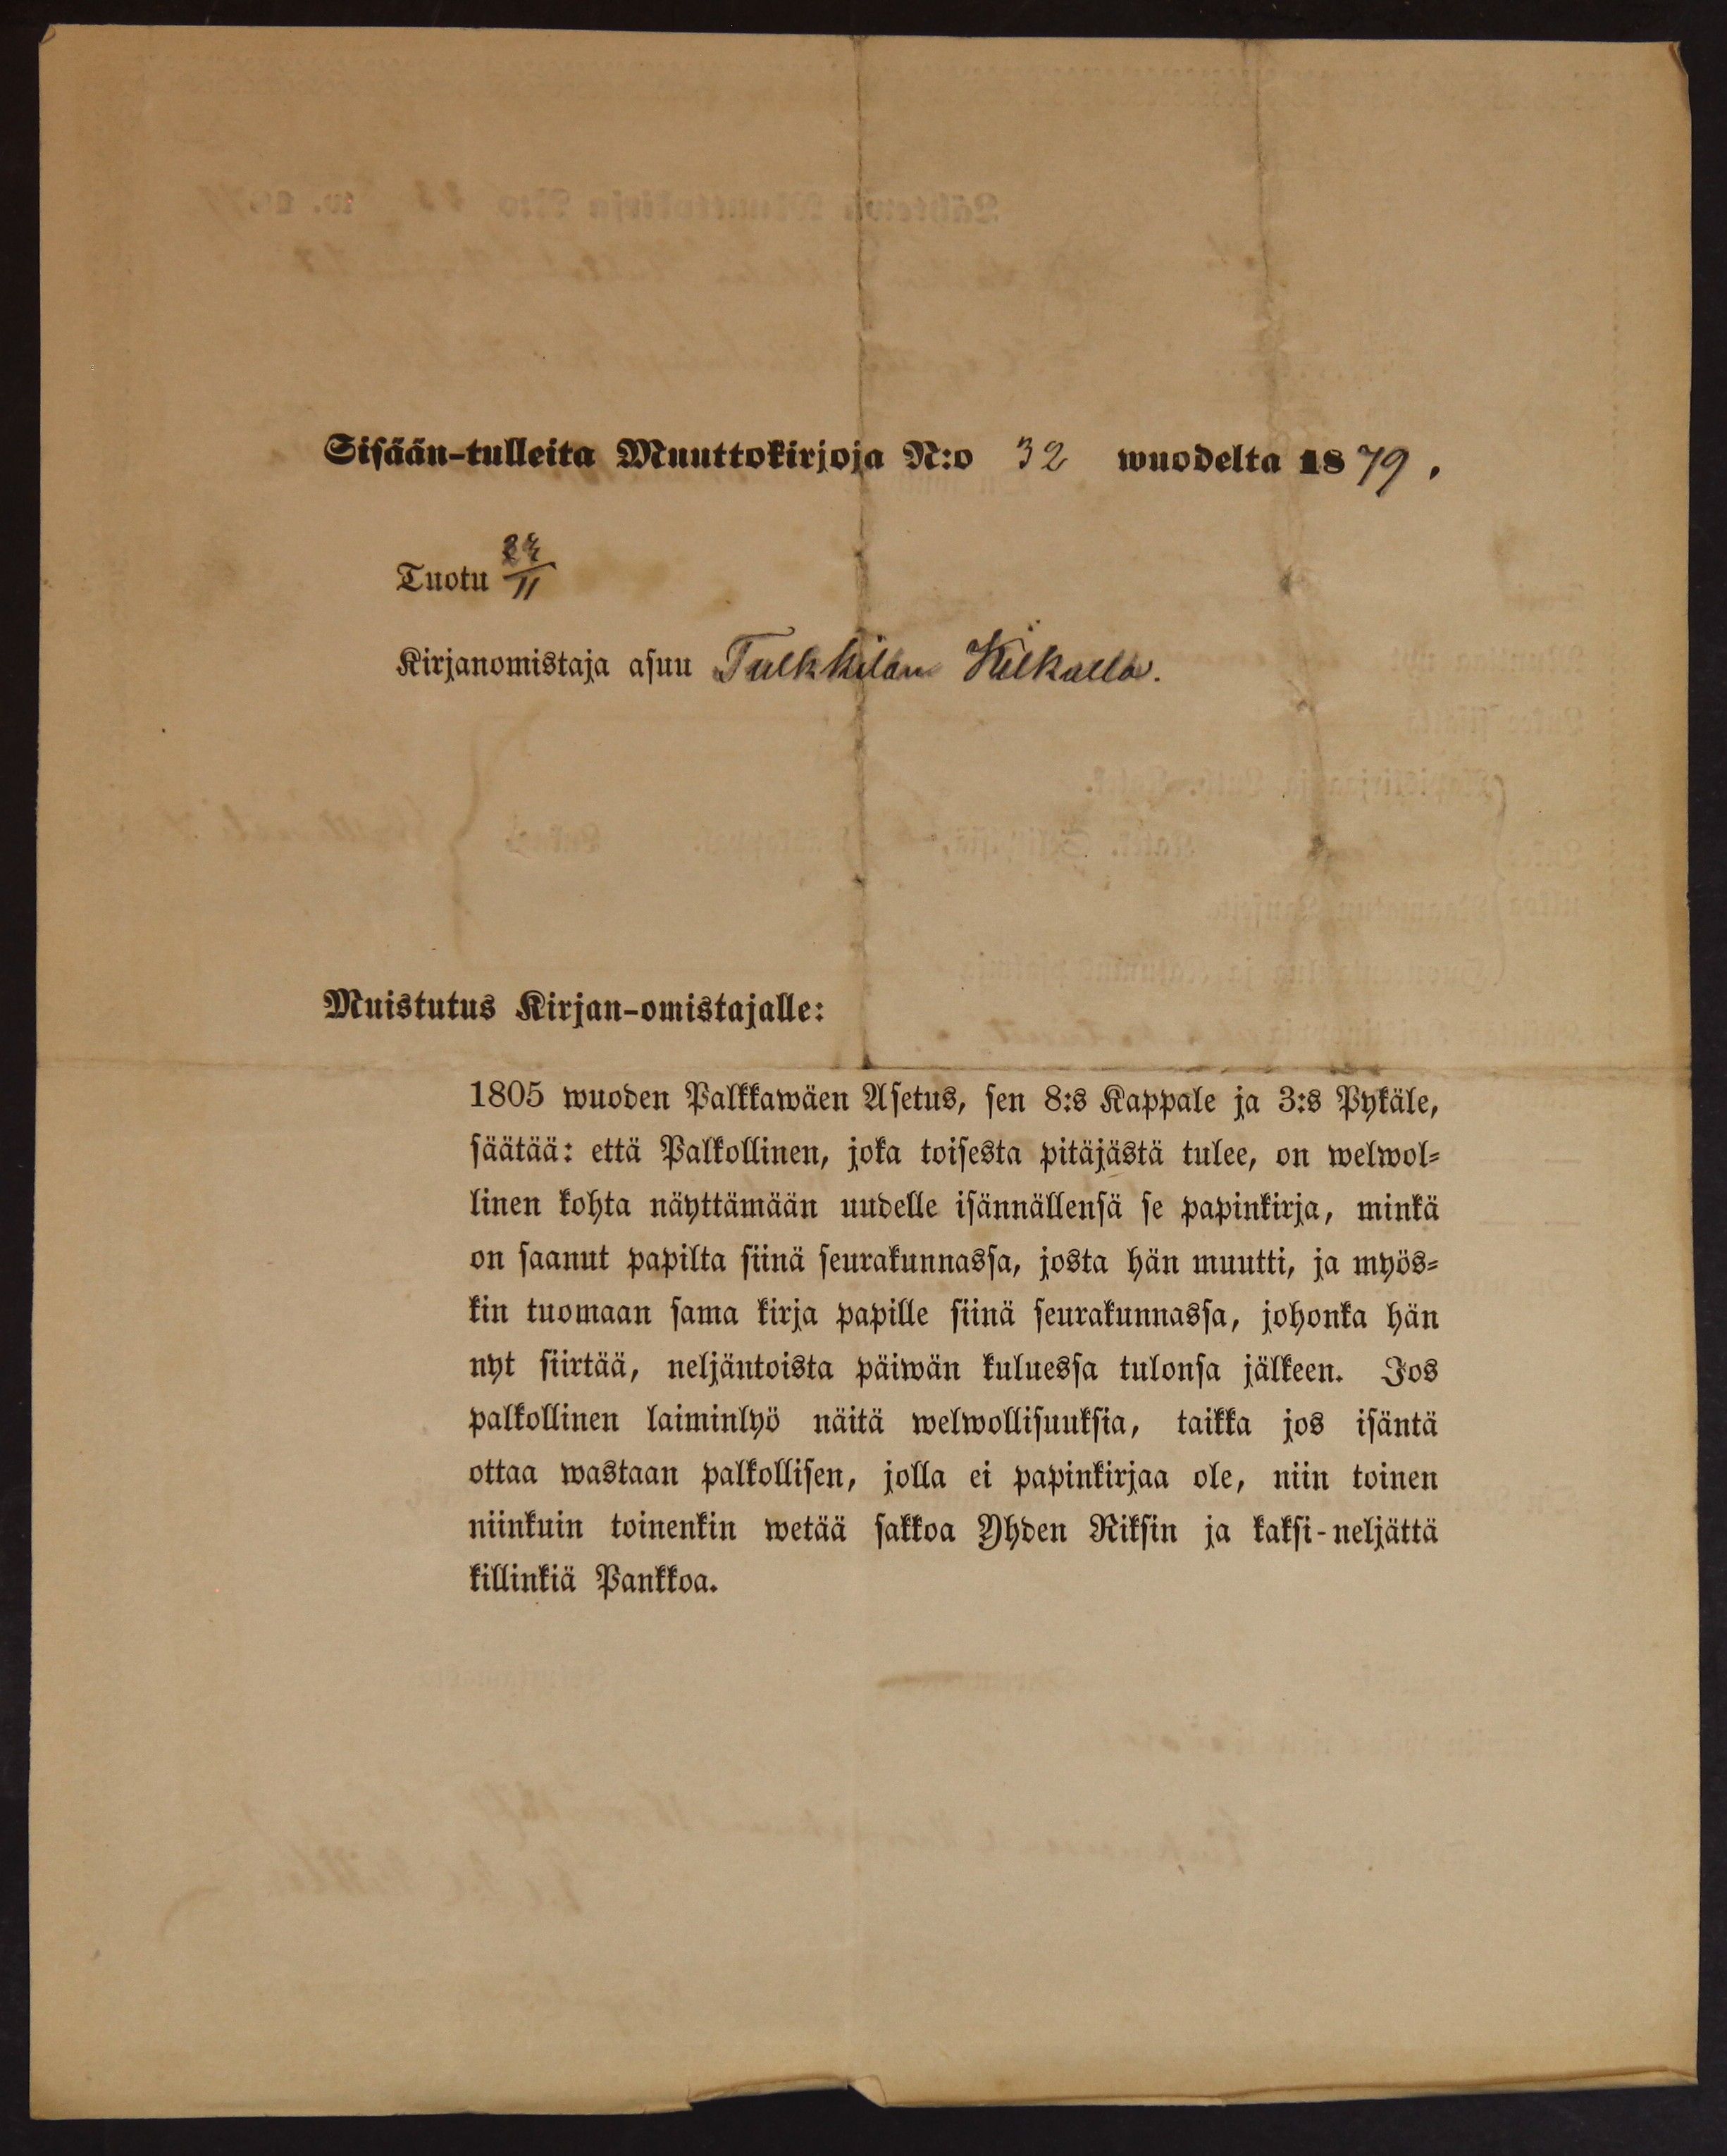 Sisään-tulleita Muuttokirjoja N:o 32 wuodelta 1879.
Tuotu /11
Kirjanomistaja asuu Tulkkilan Kilkulla.
Muistutus Kirjan-omistajalle:
1805 wuoden Palkkawäen Asetus, sen 8:s Kappale ja 3:s Pykäle,
säätää: että Palkollinen, joka toisesta pitäjästä tulee, on welwol-
linen kohta näyttämään uudelle isännällensä se papinkirja, minkä
on saanut papilta siinä seurakunnassa, josta hän muutti, ja myös-
kin tuomaan sama kirja papille siinä seurakunnassa, johonka hän
nyt siirtää, neljäntoista päiwän kuluessa tulonsa jälkeen. Jos
palkollinen laiminlyö näitä welwollisuuksia, taikka jos isäntä
ottaa wastaan palkollisen, jolla ei papinkirjaa ole, niin toinen
niinkuin toinenkin wetää sakkoa Yhden Riksin ja kaksi-neljättä
killinkiä Pankkoa.